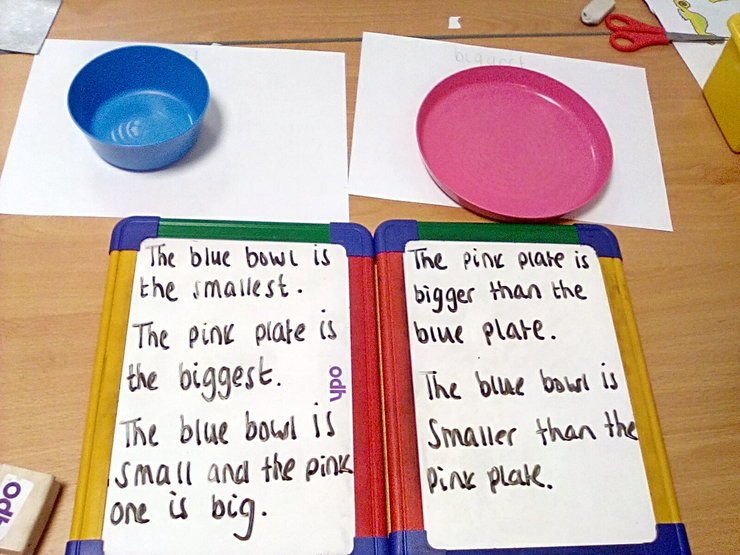 biggest
The blue bowl is
the smallest.
The pink plate is
the biggest.
The blue bowl is
small and the pink
one is big.
hdo
The pink plate is
bigger than the
blue plate.
The blue bowl is
Smaller than the
pink plate.
hdo